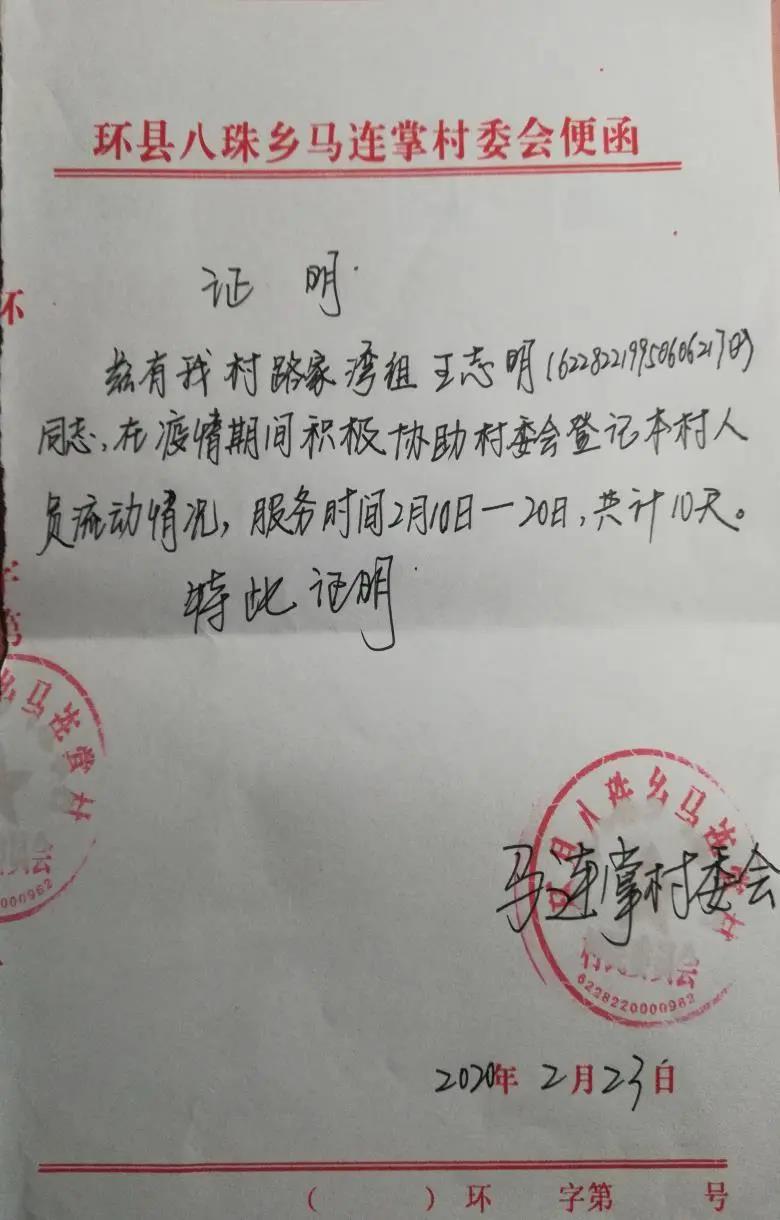 环县八珠乡马连掌村委会便函
证 明
兹有我村路家湾组王志明(622822199506062170)
同志,在疫情期间积极协助村委会登记本村人
员流动情况,服务时间2月10日一20日,共计10天。
特此证明
环
字第
八珠乡马连掌村
马连掌村委会
6228220000962
2020年2月23日
( ) 环 字第 号